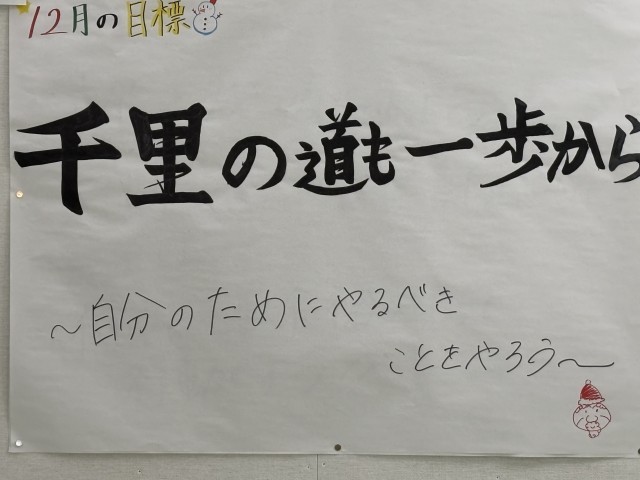 12月の目標
千里の道も一歩から
～自分のためにやるべき
ことをやろう～